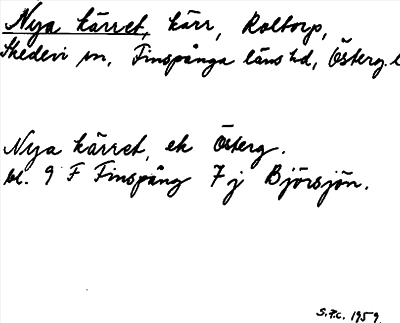 Nya kärret, kärr, Roltorp,
Skedevi sn, Finspånga läns hd, Österg. l
Nya kärret, ek Österg.
bl. 9 F Finspång 7 j Björsjön.
S.F.C. 1959.